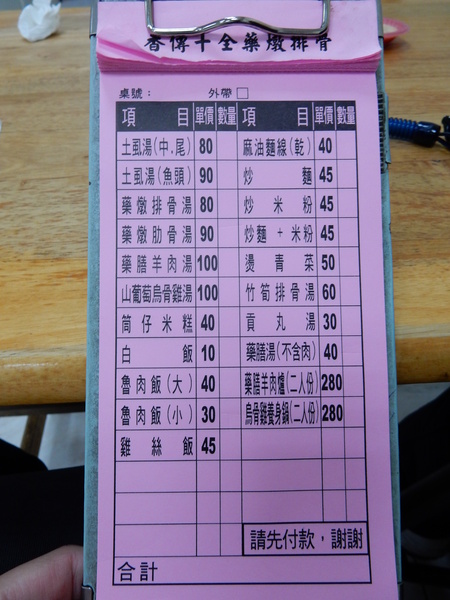 香傳十全藥燉排骨
桌號： 外帶□
項目 單價 數量 項目 單價 數量
土虱湯(中.尾) 80 麻油麵線(乾) 40
土虱湯(魚頭) 90 炒麵 45
藥燉排骨湯 80 炒米粉 45
藥燉肋骨湯 90 炒麵+米粉 45
藥膳羊肉湯 100 燙青菜 50
山葡萄烏骨雞湯 100 竹筍排骨湯 60
筒仔米糕 40 貢丸湯 30
白飯 10 藥膳湯(不含肉) 40
魯肉飯(大) 40 藥膳羊肉爐(二人份) 280
魯肉飯(小) 30 烏骨雞養身鍋(二人份) 280
雞絲飯 45
請先付款，謝謝
合計